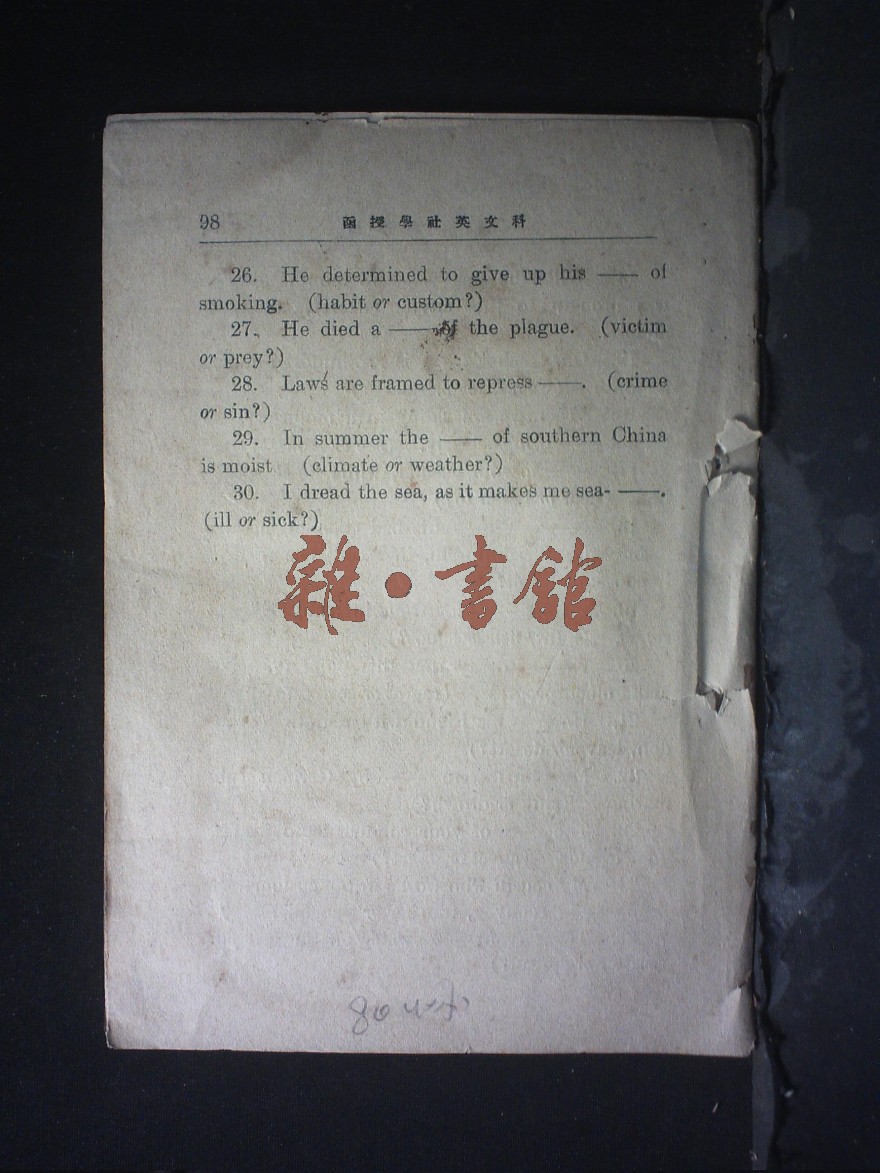 98 函授學社英文科
26. He determined to give up his —— of
smoking. (habit or custom?)
27. He died a —— of the plague. (victim
or prey?)
28. Laws are framed to repress ——. (crime
or sin?)
29. In summer the —— of southern China
is moist (climate or weather?)
30. I dread the sea, as it makes me sea- ——.
(ill or sick?)
雜·書館
80